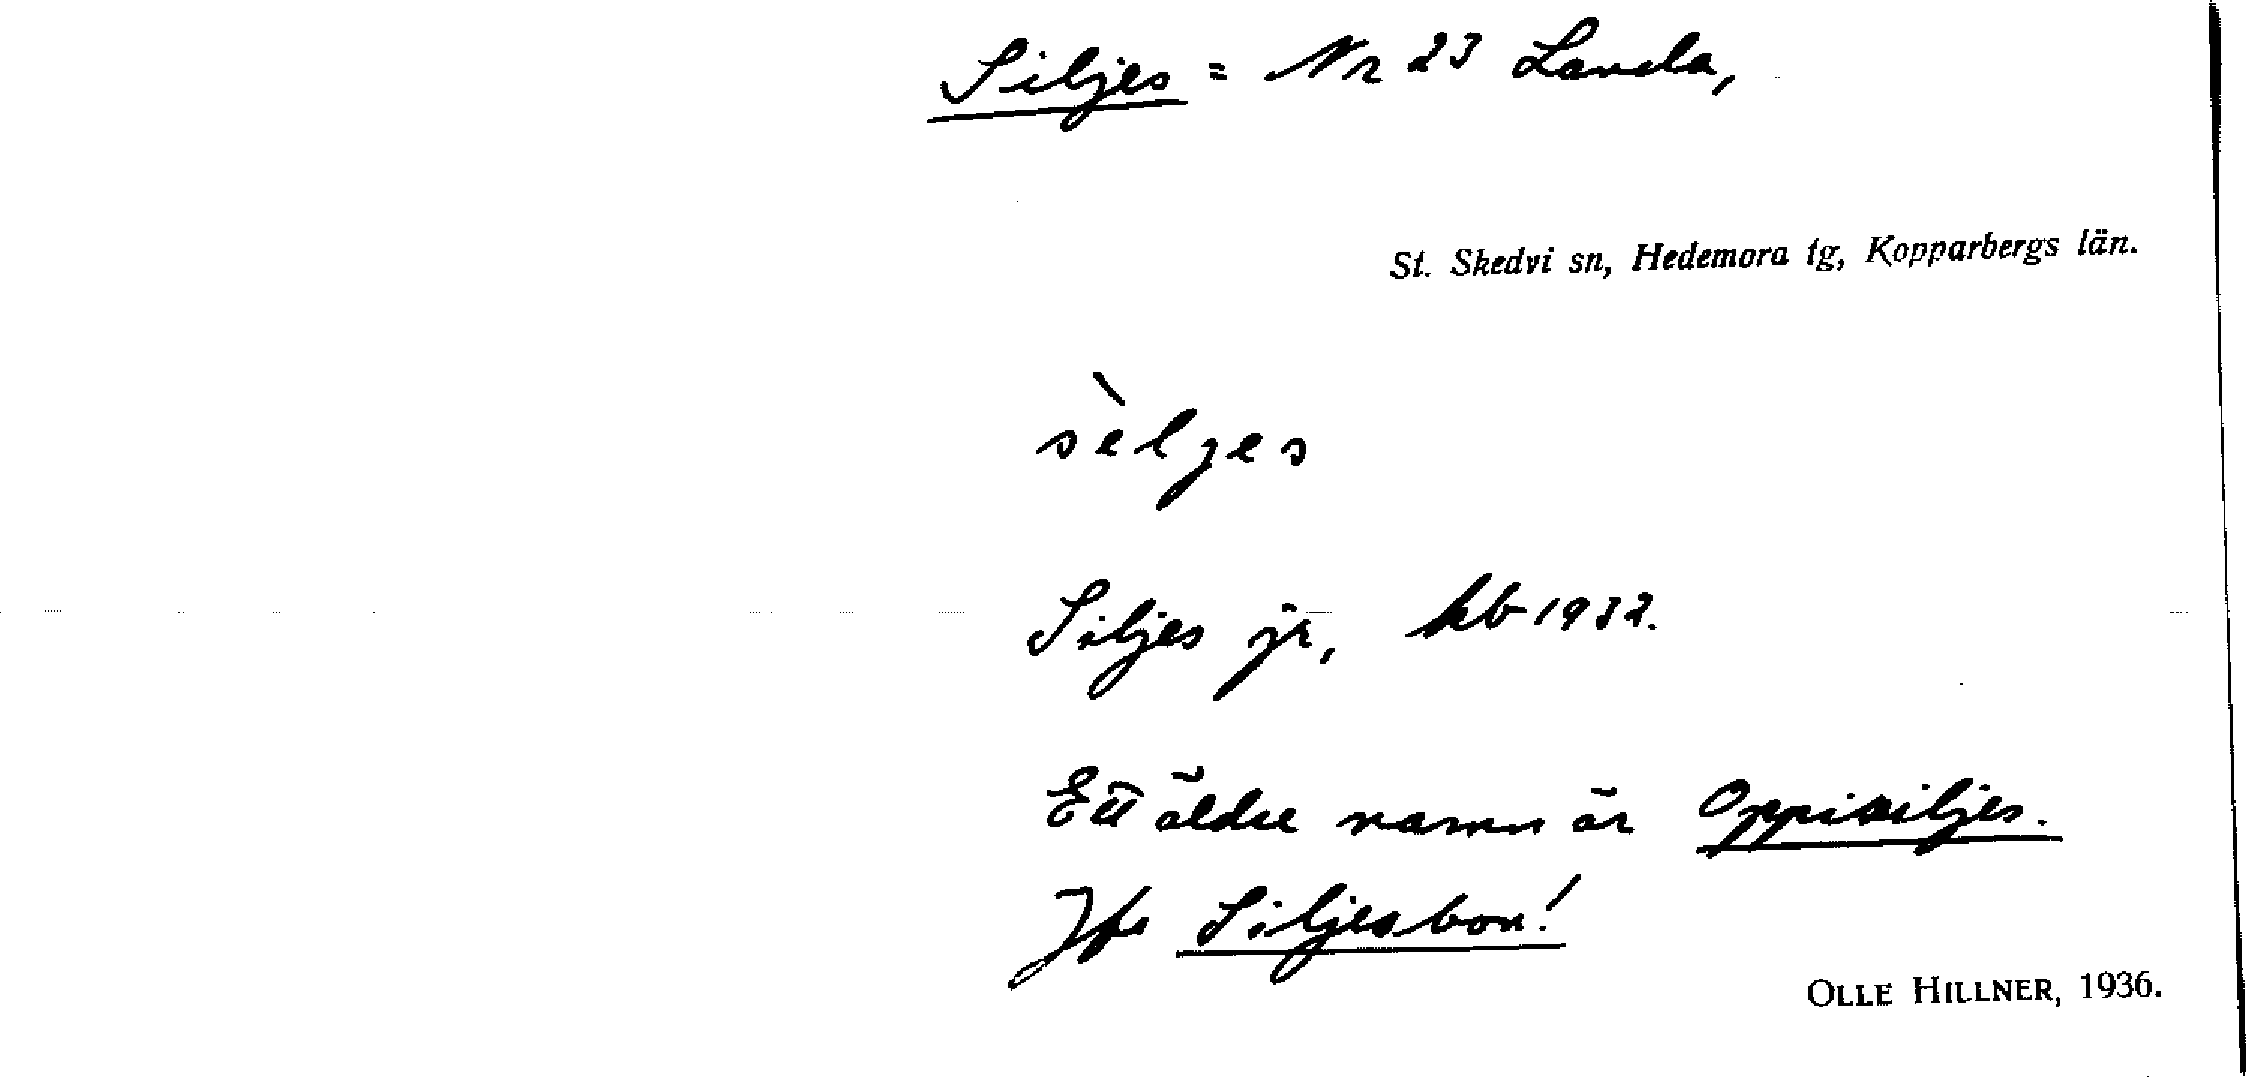 Siljes = Nr 23 Landa,
St. Skedvi sn, Hedemora tg, Kopparbergs län.
sèljes
Siljes jr, kb 1932.
Ett äldre namn är Oppisiljes.
Jfr Siljesbon!
OLLE HILLNER, 1936.